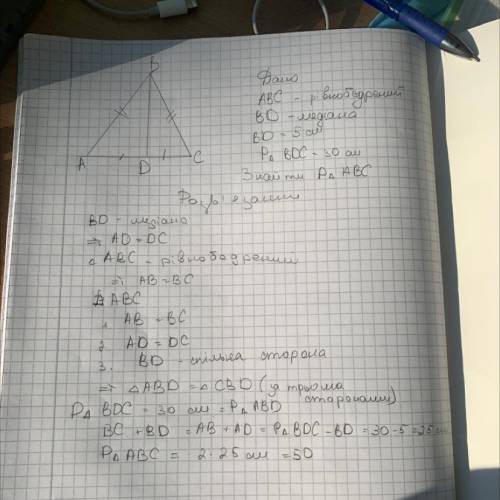 B
A
D
C
Дано
ABC - рівнобедрений
BD - медіана
BD = 5 см
P△ BDC = 30 см
Знайти P△ ABC
Розв'язання
BD - медіана
⇒ AD = DC
△ ABC - рівнобедрений
⇒ AB = BC
△ ABC
1. AB = BC
2. AD = DC
3. BD - спільна сторона
⇒ △ABD = △CBD (у трьома
сторонами)
P△ BDC = 30 см = P△ ABD
BC + BD = AB + AD = P△ BDC - BD = 30 - 5 = 25 см
P△ ABC = 2 · 25 см = 50